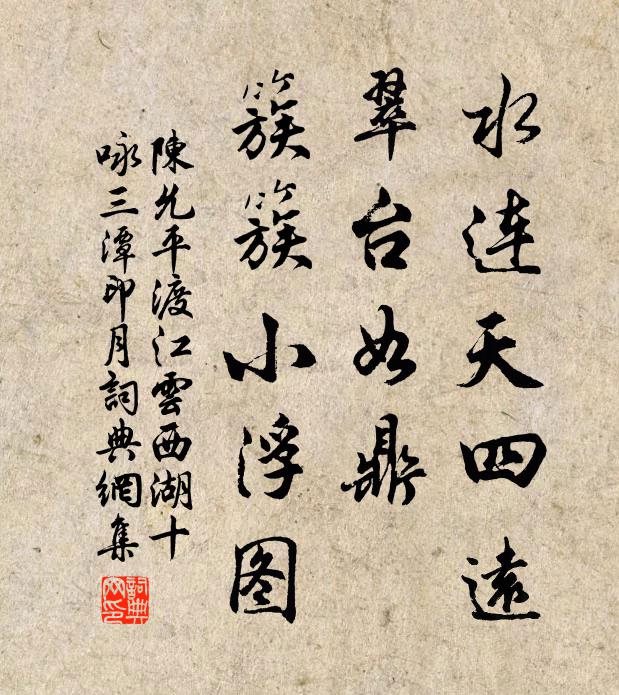 水连天四遠
翠台如鼎
簇簇小浮图
陳允平渡江雲西湖十
咏三潭印月詞典網集
詞典网印